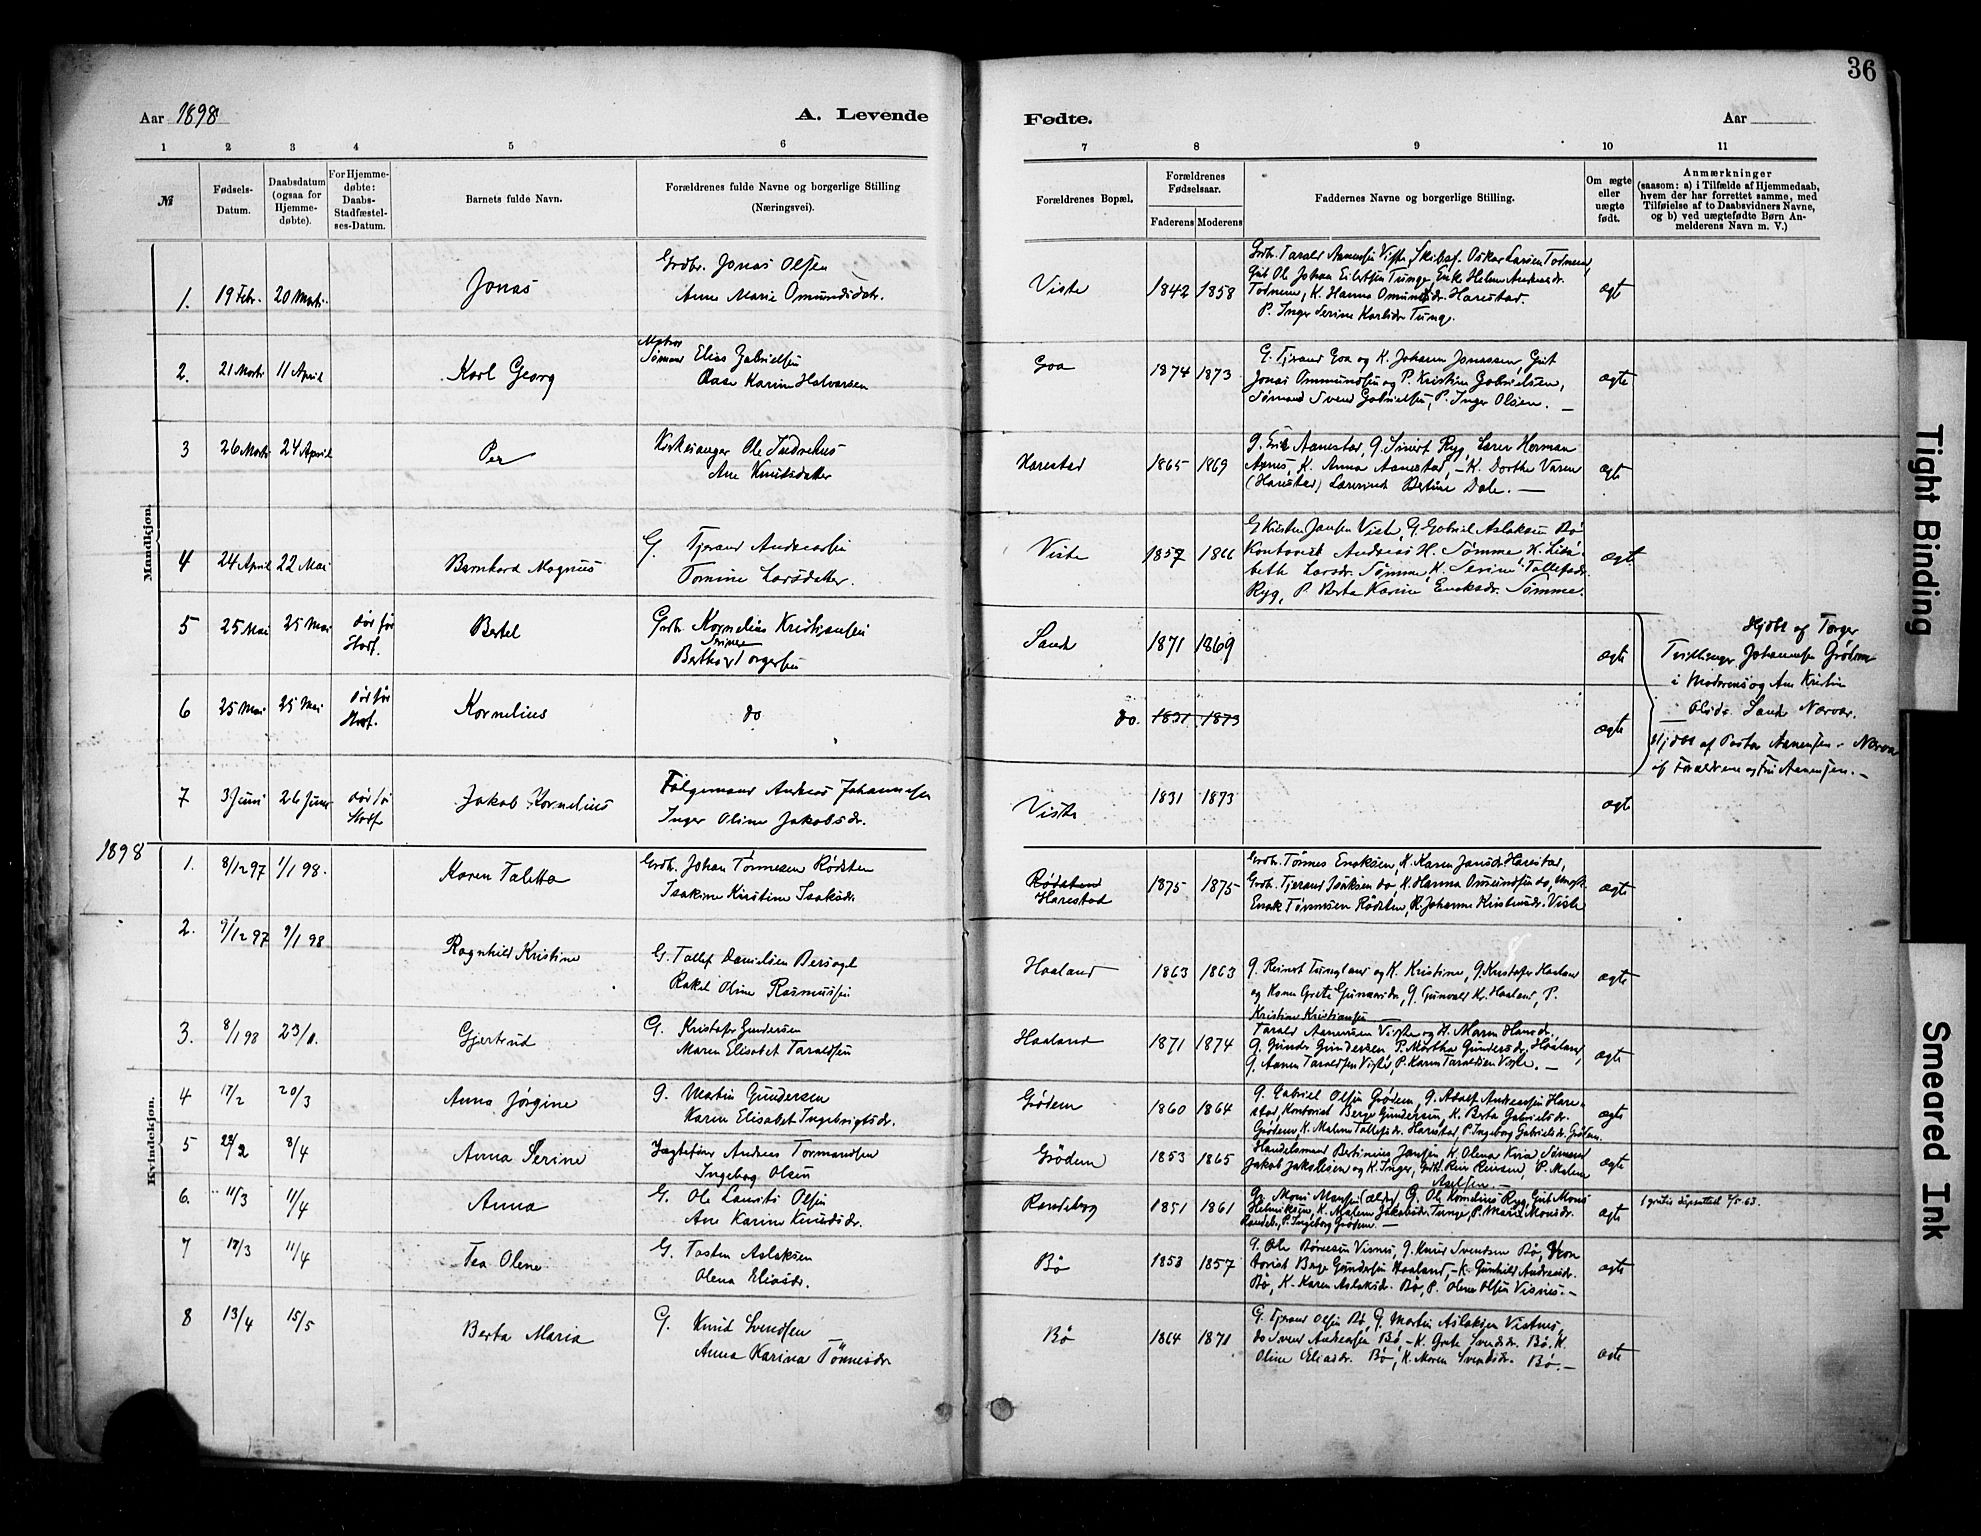 36
Aar 1898
A. Levende
Fødte.
Aar
1 2 3 4 5 6 7 8 9 10 11
№
Fødsels-
Datum.
Daabsdatum
(ogsaa for
Hjemme-
døbte).
For Hjemme-
døbte:
Daabs-
Stadfæstel-
ses-Datum.
Barnets fulde Navn.
Forældrenes fulde Navne og borgerlige Stilling
(Næringsvei).
Forældrenes Bopæl.
Forældrenes
Fødselsaar.
Faderens Moderens
Faddernes Navne og borgerlige Stilling.
Om ægte
eller
uægte
født.
Anmærkninger
(saasom: a) i Tilfælde af Hjemmedaab,
hvem der har forrettet samme, med
Tilføielse af to Daabsvidners Navne,
og b) ved uægtefødte Børn An-
melderens Navn m. V.)
Mandkjøn.
1. 19 Febr. 20 Marts Jonas
Grdbr. Jonas Olsen
Anne Marie Omundsdatr.
Viste 1842 1858
Grdb. Tarald Aanensen Viste, Skibsf. Oskar Larsen Todnem,
Gut Ole Johan Eilertsen Tunge, Enke Helene Andreasdr.
Todnem, K. Hanna Omundsdr. Harestad.
P. Inger Serine Karlsdr Tunge.
ægte
2. 21 Marts 11 April Karl Georg
Matros
Sømand Elias Gabrielsen
Aase Karine Halvorsen
Goa 1874 1873
G. Tjerand Goa og K. Johanne Jonassen, Gut
Jonas Ommundsen og P. Kristine Gabrielsen,
Sømand Svend Gabrielsen, P. Inger Olsen. —
ægte
3 26 Marts 24 April Per
Kirkesanger Ole Indrehus
Ane Knutsdatter
Harestad 1865 1869
G. Erik Aanestad, G. Sivert Ryg, Lærer Herman
Agnes, K. Anna Aanestad, — K. Dorthe Varen
(Harestad) Lærerinde Bertine Dale. —
ægte
4 24 April 22 Mai Bernhard Magnus
G. Tjerand Andreassen
Tomine Larsdatter.
Viste 1857 1866
G Kristen Jansen Viste, G. Gabriel Aslaksen Bø
Kontorist Andreas H. Sømme K. Lisa-
beth Larsdr. Sømme, K. Serine Tollefsdr.
Ryg, P. Berta Karine Enoksdr. Sømme.
ægte
5 25 Mai 25 Mai død før
Stadf.
Bertel
Grdb. Kornelius Kristiansen
Serine
Bertha Torgersen
Sande 1871 1869 ægte
Hjdbt af Torger
Tvillinger Johannesen Grødem
i Moderens og Ane Kristine
Olsdr. Sande Nærvær.
6 25 Mai 25 Mai død før
Stadf.
Kornelius do
do. 1831 1873 ægte
Hjdbt af Pastor Aanensen i Nærvær
af Forældrene og Fru Aanensen. —
7 3 Juni 26 Juni død før
Stadf
Jakob Kornelius
Følgemand Andreas Johannessen
Inger Oline Jakobsdr.
Viste 1831 1873 ægte
1898
Kvindekjøn.
1. 8/12 97 1/1 98. Karen Taletta
Grdb. Johan Tønnesen Rødsten
Isakine Kristine Isaksdr.
Rødsten
Harestad
1875 1875
Grdb. Tønnes Enoksen, K. Karen Jansdr Harestad,
Grdb. Tjerand Isaksen do, K. Hanna Omundsen do, Ungk.
Enok Tønnesen Rødsten, P. Johanne Kristensdr. Viste
ægte
2. 9/12 97 9/1 98 Ragnhild Kristine
G. Tollef Danielsen Bersagel
Rakel Oline Rasmussen
Haaland 1863 1863
G. Reinert Tungland og K. Kristine, G. Kristofer Haaland
og Kone Grete Gunnarsdr, G. Gunvald Kr. Haaland, P.
Kristine Kristiansen
ægte
3. 8/1 98 23/1. Gjertrud
G. Kristofer Gundersen
Maren Elisabet Taraldsen
Haaland 1871 1874
Tarald Aanensen Viste og K. Maren Hansdr.
G. Gunder Gundersen P. Martha Gundersdr, Haaland,
G. Aanen Taraldsen Viste, P. Karen Taraldsen Viste. —
ægte
4 17/2 20/3 Anna Jørgine
G. Martin Gundersen
Karen Elisabet Ingebrigtsdr.
Grødem 1860 1864
G. Gabriel Olsen Grødem, G. Adolf Andreassen Hare-
stad, Kontorist Berge Gundersen, K. Berta Gabrielsdr.
Grødem, K. Malene Tollefsdr. Harestad, P. Ingeborg Gabrielsdr. Grødem.
ægte
5 22/2 8/4 Anna Serine
Jægtefører Andreas Tormundsen
Ingeborg Olsen
Grødem 1853 1865
Handelsmand Bertinius Jansen K. Olena Kvia Sømand
Jakob Jakobsen og K. Inger, Grdb. Rein Reinsen, P. Malene
Axelsen. —
ægte
6. 11/3 11/4 Anna
G. Ole Laurits Olsen
Ane Karine Knudsdr.
Randeberg 1851 1861
G. Mons Monsen (Ældre), G. Ole Kornelius Ryg, Gut Mons
Helmiksen, K. Malene Jakobsdr. Tunge, P. Maria Monsdr.
Randeb., P. Ingeborg Grødem. —
ægte
1 gratis dåpsattest 7/5-63.
7 17/3 11/4 Tea Olene
G. Tosten Aslaksen
Olena Eliasdr.
Bø 1853 1857
G. Ole Børresen Visnes, G. Knud Svendsen Bø, Kon
torist Berge Gundersen Haaland, — K. Gunhild Andreasdr.
Bø, K. Karen Aslaksdr. Bø, P. Olene Olsen Visnes. —
ægte
8 13/4 15/5 Berta Maria
G. Knud Svendsen
Anna Karina Tønnesdr
Bø 1864 1871
G. Tjerand Olsen Bø, G. Martin Aslaksen Vistnes,
do Svend Andreassen Bø, — K. Grete Svendsdr. Bø, K.
Oline Eliasdr. Bø, K. Maren Svendsdr. Bø. —
ægte
Tight Binding
Smeared Ink